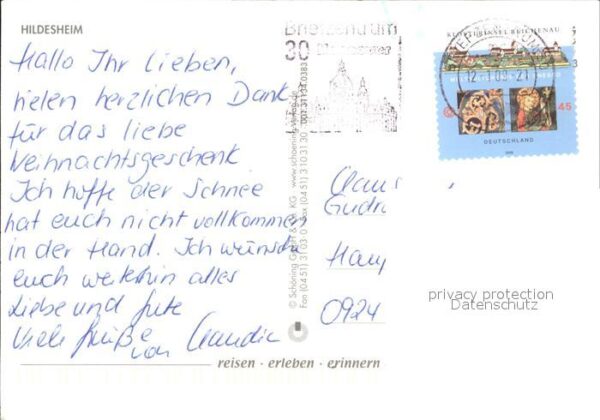 HILDESHEIM
Hallo Ihr Lieben,
vielen herzlichen Dank
für das liebe
Weihnachtsgeschenk
Ich hoffe der Schnee
hat euch nicht vollkommen
in der Hand. Ich wünsche
euch weiterhin alles
Liebe und Gute
Viele Grüße
von Claudia
© Schöning GmbH & Co. KG · www.schoening-verlag.de
Fon (04 51) 3 10 3 0 · Fax (04 51) 3 10 31 30 001 31134 0383
Briefzentrum
30
KLOSTERINSEL REICHENAU
45
DEUTSCHLAND
Claus
Gudr
Haup
0924
privacy protection
Datenschutz
reisen · erleben · erinnern